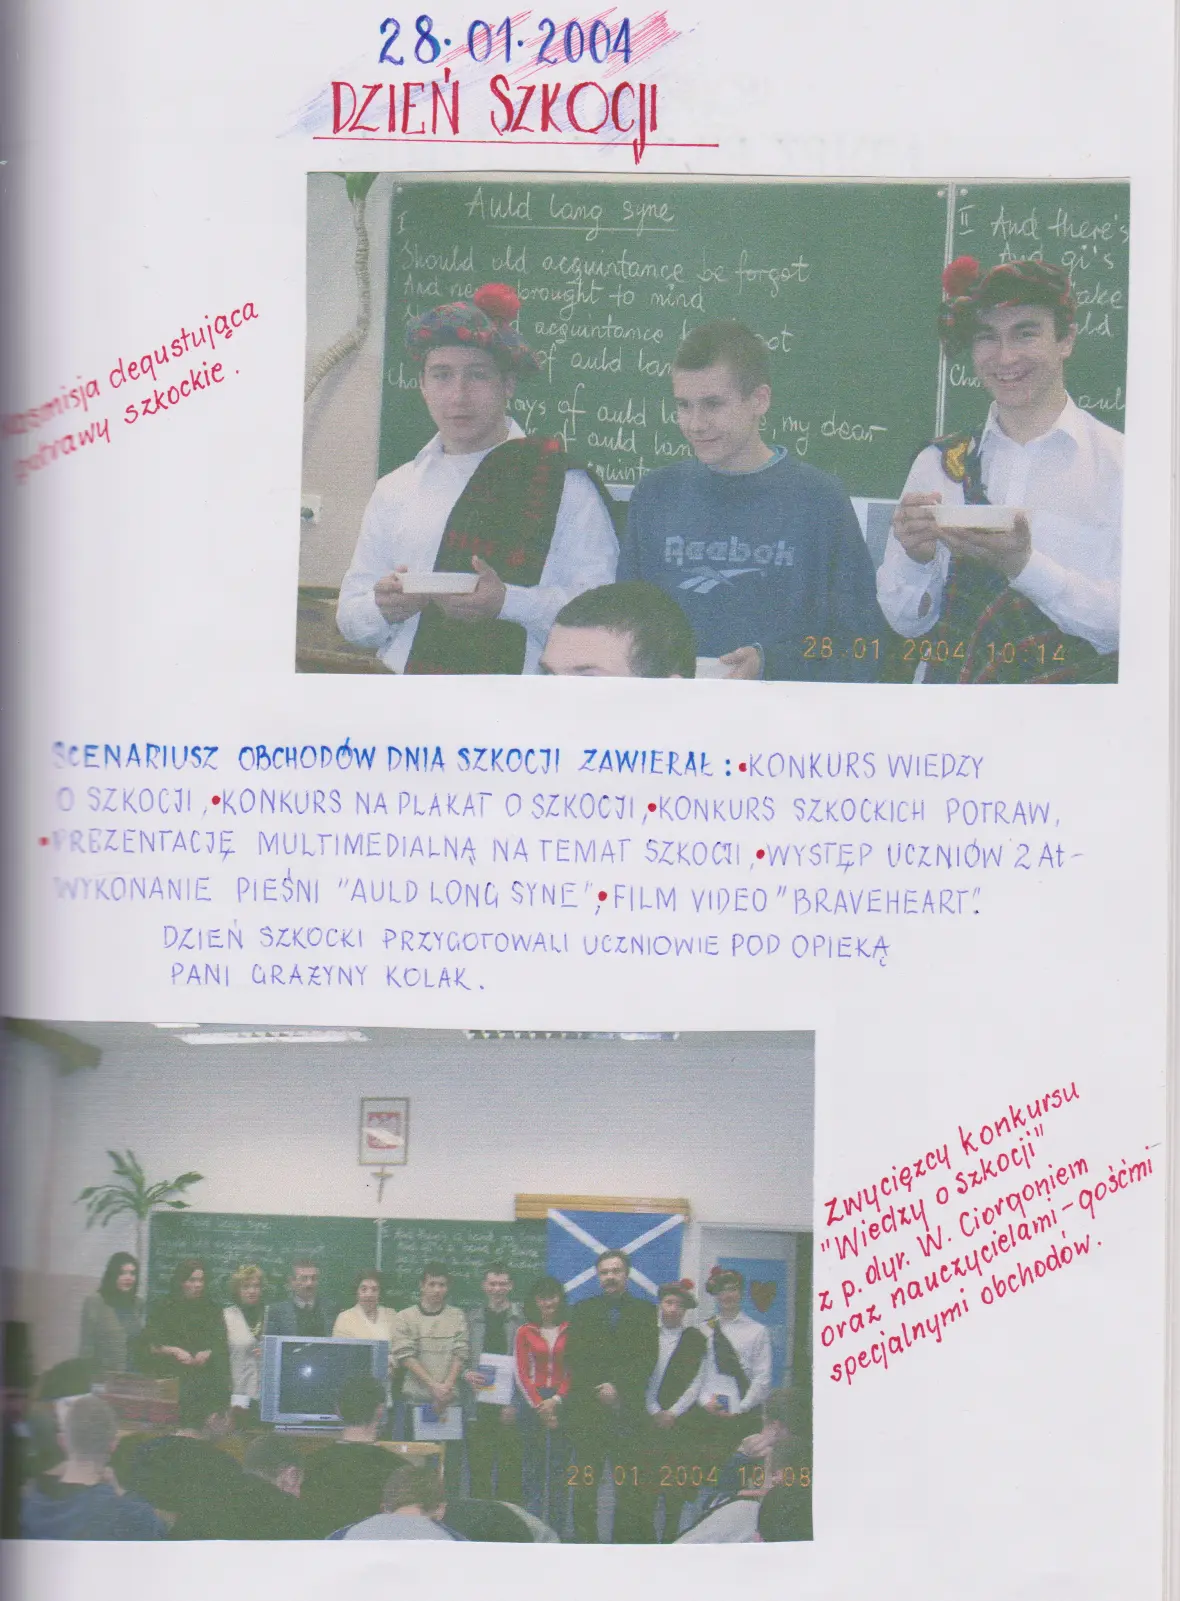 28.01.2004
DZIEŃ SZKOCJI
Auld lang syne
I
Should old acquintance be forgot
And ne brought to mind
d acquintance b ot
of auld lan
Cho
ays of auld l e, my dear
of auld lan
quint
II And there's
And gi's
take
uld
Cho
aul
Reebok
28.01.2004 10:14
Komisja degustująca
potrawy szkockie.
SCENARIUSZ OBCHODÓW DNIA SZKOCJI ZAWIERAŁ: •KONKURS WIEDZY
O SZKOCJI, •KONKURS NA PLAKAT O SZKOCJI, •KONKURS SZKOCKICH POTRAW,
•PREZENTACJĘ MULTIMEDIALNĄ NA TEMAT SZKOCJI, •WYSTĘP UCZNIÓW 2 At-
WYKONANIE PIEŚNI "AULD LONG SYNE", •FILM VIDEO "BRAVEHEART".
DZIEŃ SZKOCKI PRZYGOTOWALI UCZNIOWIE POD OPIEKĄ
PANI GRAŻYNY KOLAK.
Auld lang syne
28 01 2004 10 08
Zwycięzcy konkursu
"Wiedzy o Szkocji"
z p. dyr. W. Ciorgoniem
oraz nauczycielami-gośćmi
specjalnymi obchodów.